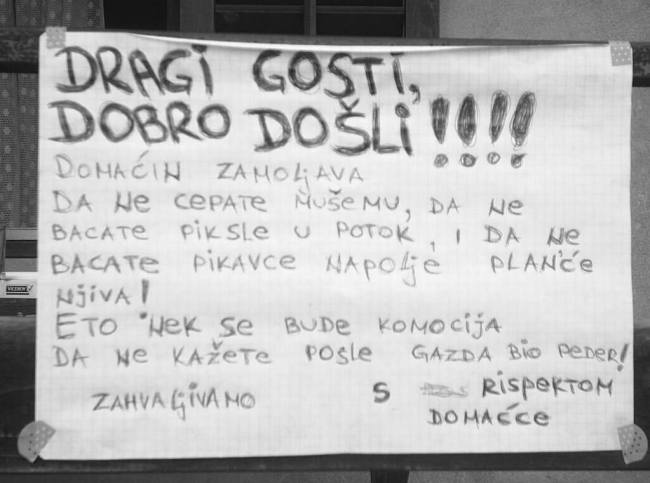 DRAGI GOSTI,
DOBRO DOŠLI !!!!
DOMAĆIN ZAMOLJAVA
DA NE CEPATE MUŠEMU, DA NE
BACATE PIKSLE U POTOK, I DA NE
BACATE PIKAVCE NAPOLJE PLANĆE
NJIVA!
ETO NEK SE BUDE KOMOCIJA
DA NE KAŽETE POSLE GAZDA BIO PEDER!
ZAHVALJIVAMO S RISPEKTOM
DOMAĆĆE